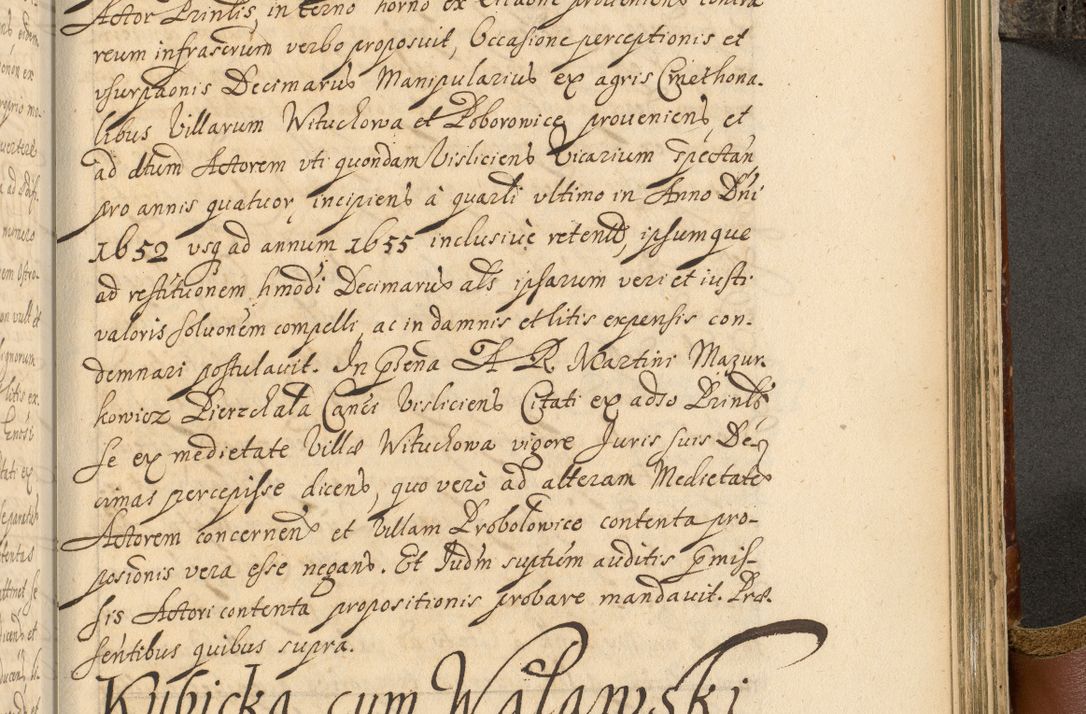 Actor Prinlis, in terno horno ex Citaõne proveniens contra
reum infrascrum verbo proposuit, Occasione perceptionis et
vsurpaõnis Decimarus Manipularius ex agris Cmethona-
libus Villarum Wituchowa et Poborowice proueniens, et
ad dtum Actorem vti quondam Visliciens Vicarium spectan,
pro annis quatuor, incipiens à quarti vltimo in Anno Dni
1652 vsq ad annum 1655 inclusiuè retent, ipsumque
ad restituõnem hmõdi Decimarus als ipsarum veri et iusti
valoris soluonem compelli, ac in damnis et litis expensis con-
demnari postulauit. In psena A R Martini Mazur-
kowicz Pierzchala Canci Visliciens Citati ex adso Prinlis
se ex medietate Villæ Wituchowa vigore Juris suis De-
cimas percepisse dicens, quo verò ad alteram Medietate
Actorem concernen et Villam Probolowice contenta pro-
posionis vera esse negans. Et Judm suptũm auditis pmis-
sis Actori contenta propositionis probare mandauit. Præ-
sentibus quibus supra.
Kubicka cum Walawski